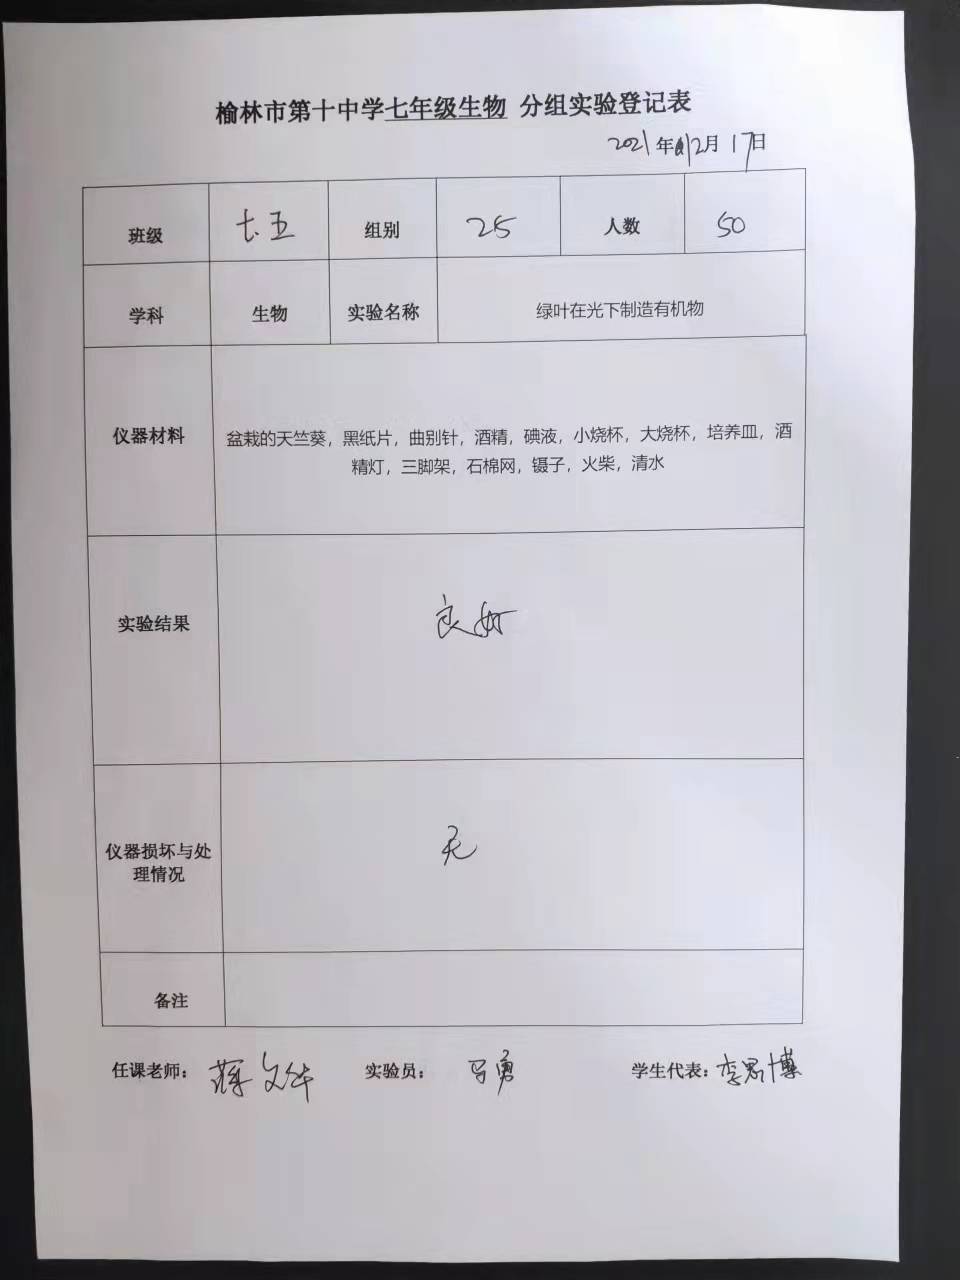 榆林市第十中学七年级生物 分组实验登记表
2021年12月17日
班级 七.五 组别 25 人数 50
学科 生物 实验名称 绿叶在光下制造有机物
仪器材料 盆栽的天竺葵，黑纸片，曲别针，酒精，碘液，小烧杯，大烧杯，培养皿，酒
精灯，三脚架，石棉网，镊子，火柴，清水
实验结果 良好
仪器损坏与处
理情况 无
备注
任课老师： 蒋文华 实验员： 马勇 学生代表：李思博